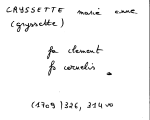 CRYSSETTE marie anne
(gryssette)
fa clement
fa cornelis
(1709) 326, 314 vo